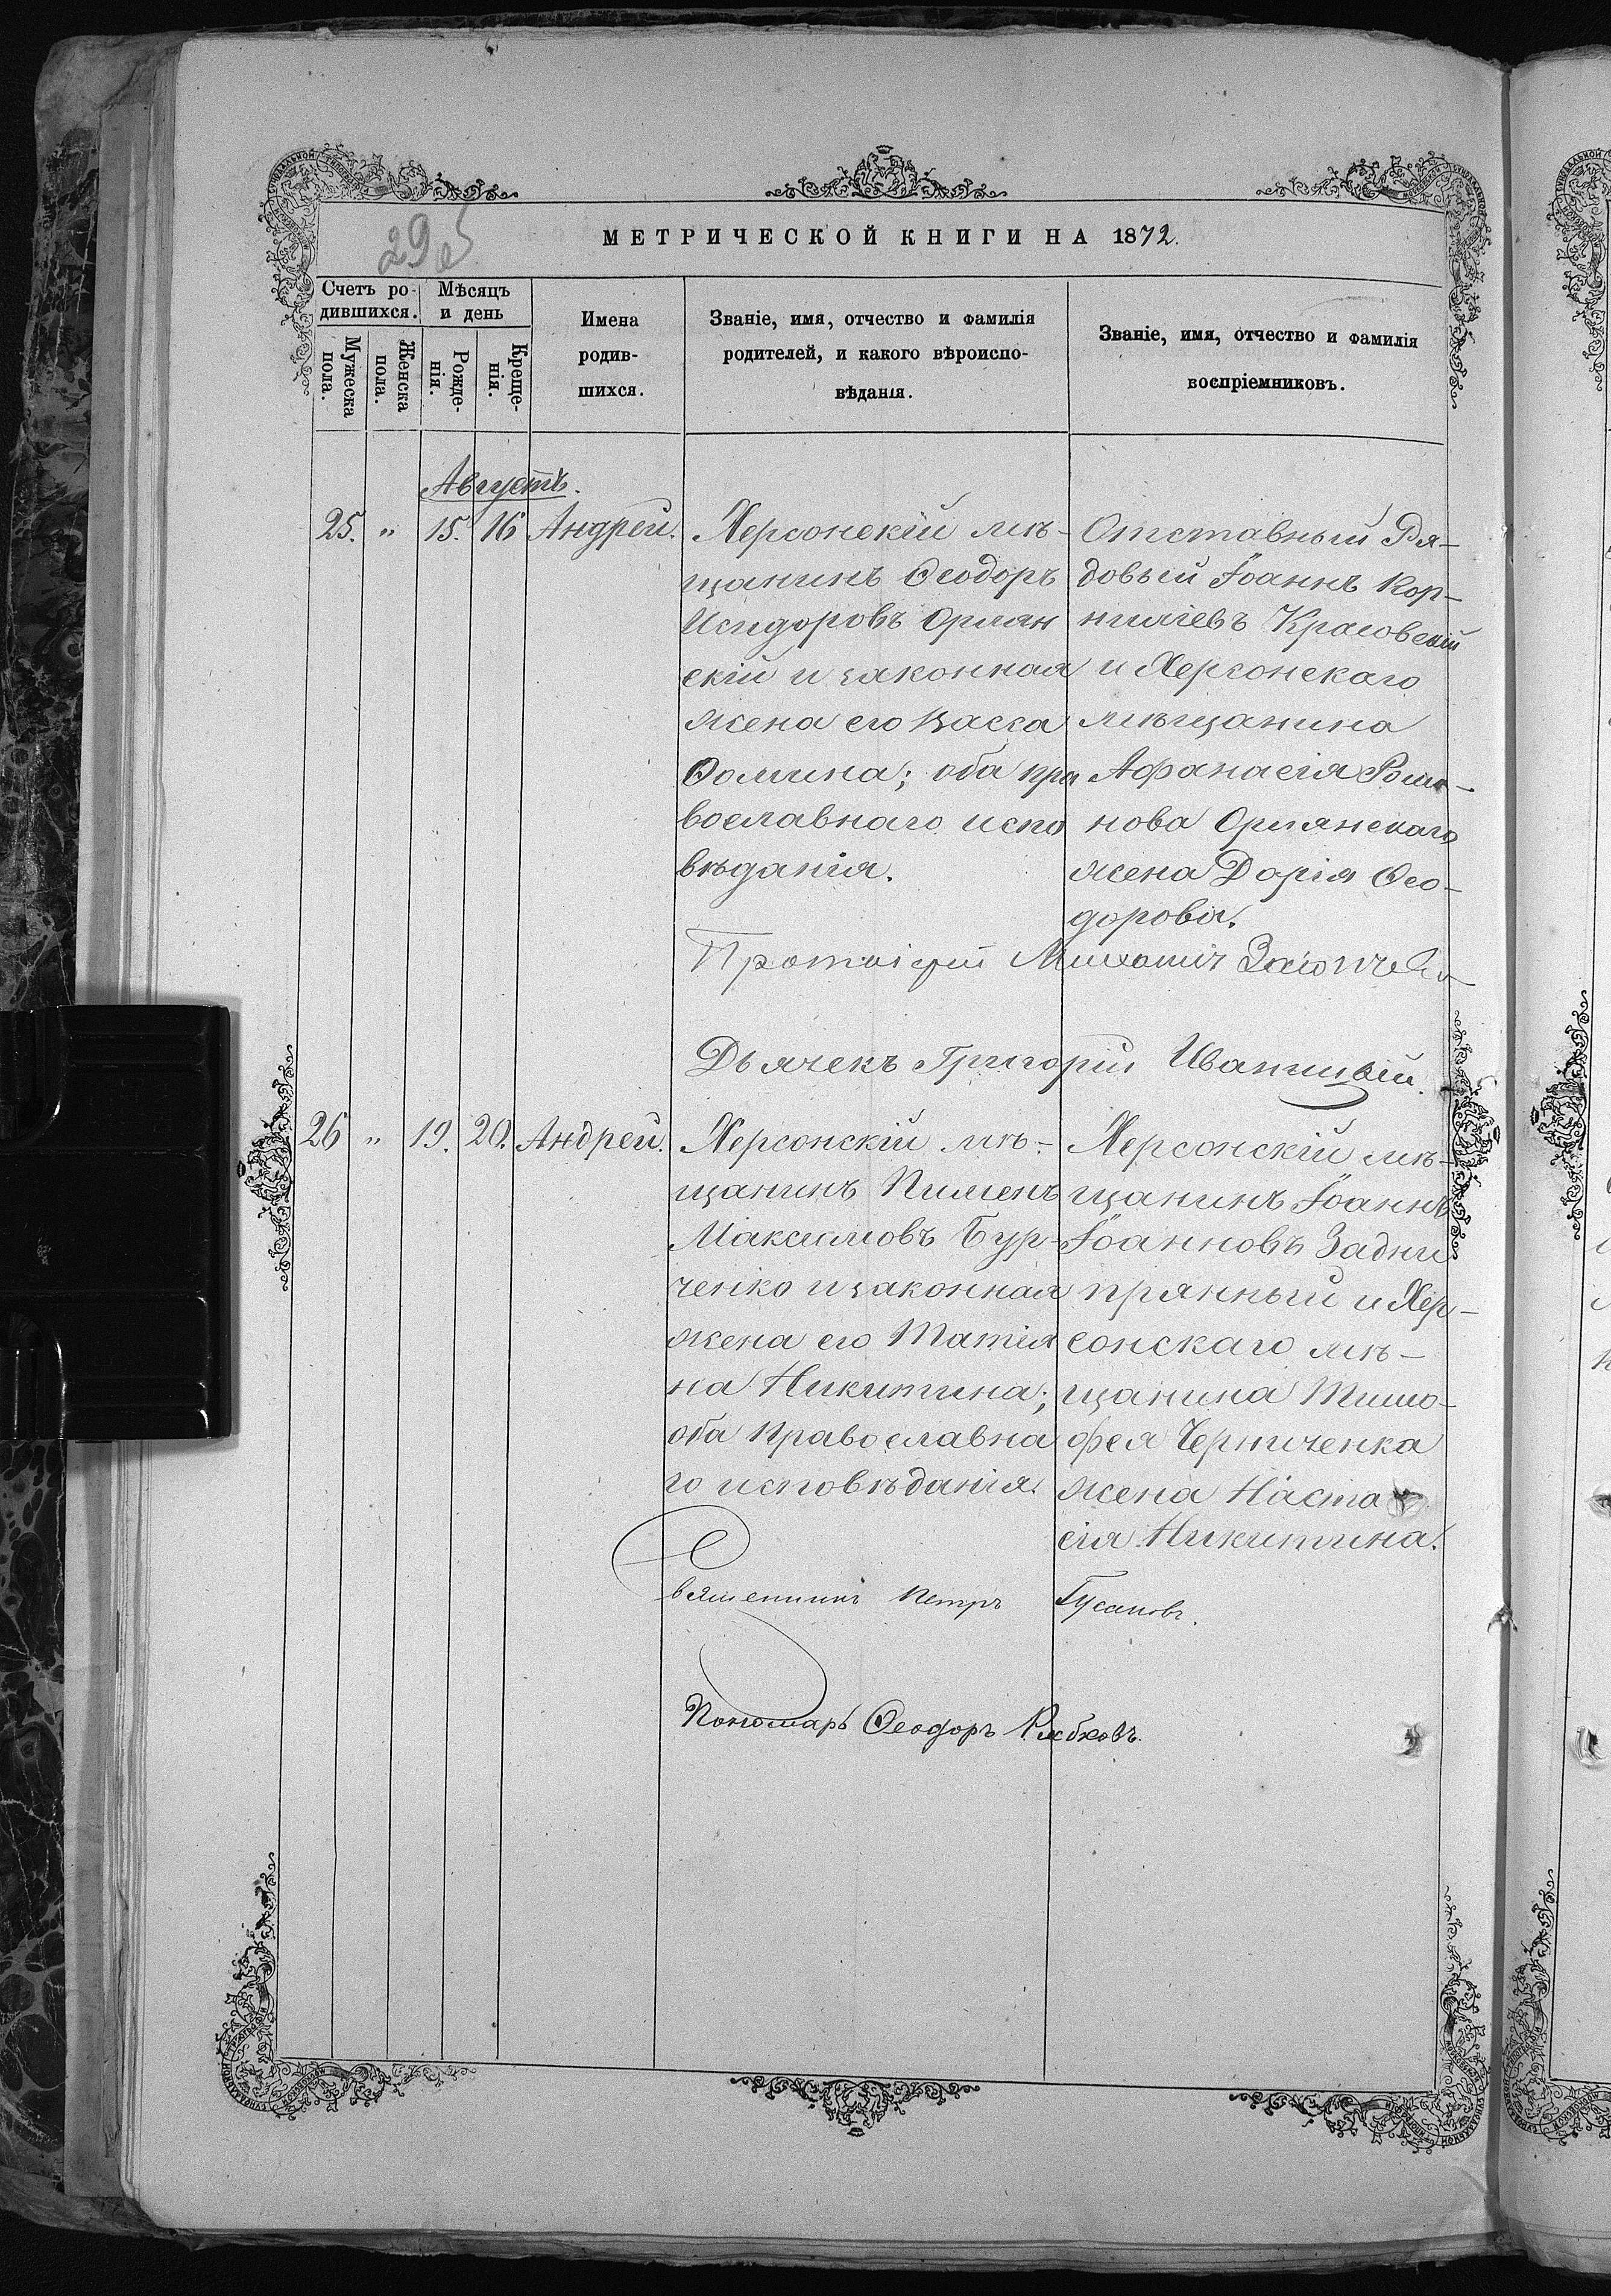 295
МЕТРИЧЕСКОЙ КНИГИ НА 1872.
Счетъ ро-
дившихся.
Мужеска
пола.
Женска
пола.
Мѣсяцъ
и день
Рожде-
нія.
Креще-
нія.
Имена
родив-
шихся.
Званіе, имя, отчество и фамилія
родителей, и какого вѣроиспо-
вѣданія.
Званіе, имя, отчество и фамилія
воспріемниковъ.
Августъ.
25. " 15. 16 Андрей.
Херсонскій мѣ-
щанинъ Ѳеодоръ
Исидоровъ Орлян
скій и законная
жена его Васса
Ѳомина; оба пра
вославнаго испо
вѣданія.
Отставный Ря-
довый Іоаннъ Кор-
ниліевъ Красовскій
и Херсонскаго
мѣщанина
Афанасія Рома-
нова Орлянскаго
жена Дарія Ѳео-
дорова.
Протоіерей Михаилъ
Дьячекъ Григорій Иваницкій.
26 " 19. 20. Андрей.
Херсонскій мѣ-
щанинъ Пименъ
Максимовъ Бур-
ченко и законная
жена его Татія
на Никитина;
оба православна
го исповѣданія.
Херсонскій мѣ-
щанинъ Іоаннъ
Іоанновъ Задни
пряный и Хер-
сонскаго мѣ-
щанина Тимо-
фея Черниченка
жена Наста
сія Никитина.
Священникъ Петръ Гусаковъ.
Пономарь Ѳеодоръ Рябковъ.